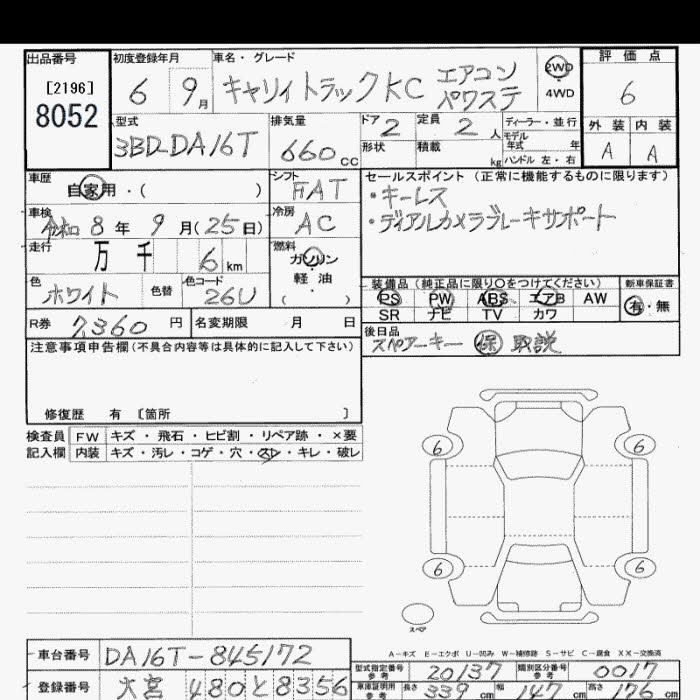 出品番号 [2196] 8052
初度登録年月 6 9月
車名・グレード キャリイトラックKC エアコン パワステ
2WD
4WD
評価点 6
型式 3BD-DA16T
排気量 660cc
ドア 2
形状
定員 2人
積載 kg
ディーラー・並行
モデル年式 年
ハンドル 左・右
外装 A
内装 A
車歴 自家用・( )
シフト FAT
車検 令和8年9月(25日)
冷房 AC
走行 万 千 6km
燃料 ガソリン・軽油 ( )
色 ホワイト 色替
色コード 26U
R券 7360円
名変期限 月 日
セールスポイント (正常に機能するものに限ります)
・キーレス
・ディアルカメラブレーキサポート
装備品 (純正品に限り〇をつけてください)
PS PW ABS エアB AW
SR ナビ TV カワ
新車保証書 有・無
後日品
スペアーキー 保 取説
注意事項申告欄 (不具合内容等は具体的に記入して下さい)
修復歴 有 〔箇所 〕
検査員 FW キズ・飛石・ヒビ割・リペア跡・×要
記入欄 内装 キズ・汚レ・コゲ・穴・スレ・キレ・破レ
6 6
6 6
スペア
A-キズ E-エクボ U-凹み W-補修跡 S-サビ C-腐食 XX-交換済
車台番号 DA16T-845172
登録番号 大宮 480と8356
型式指定番号 参考 20137
類別区分番号 参考 0017
車庫証明用 参考 長さ 339cm 幅 147cm 高さ 176cm